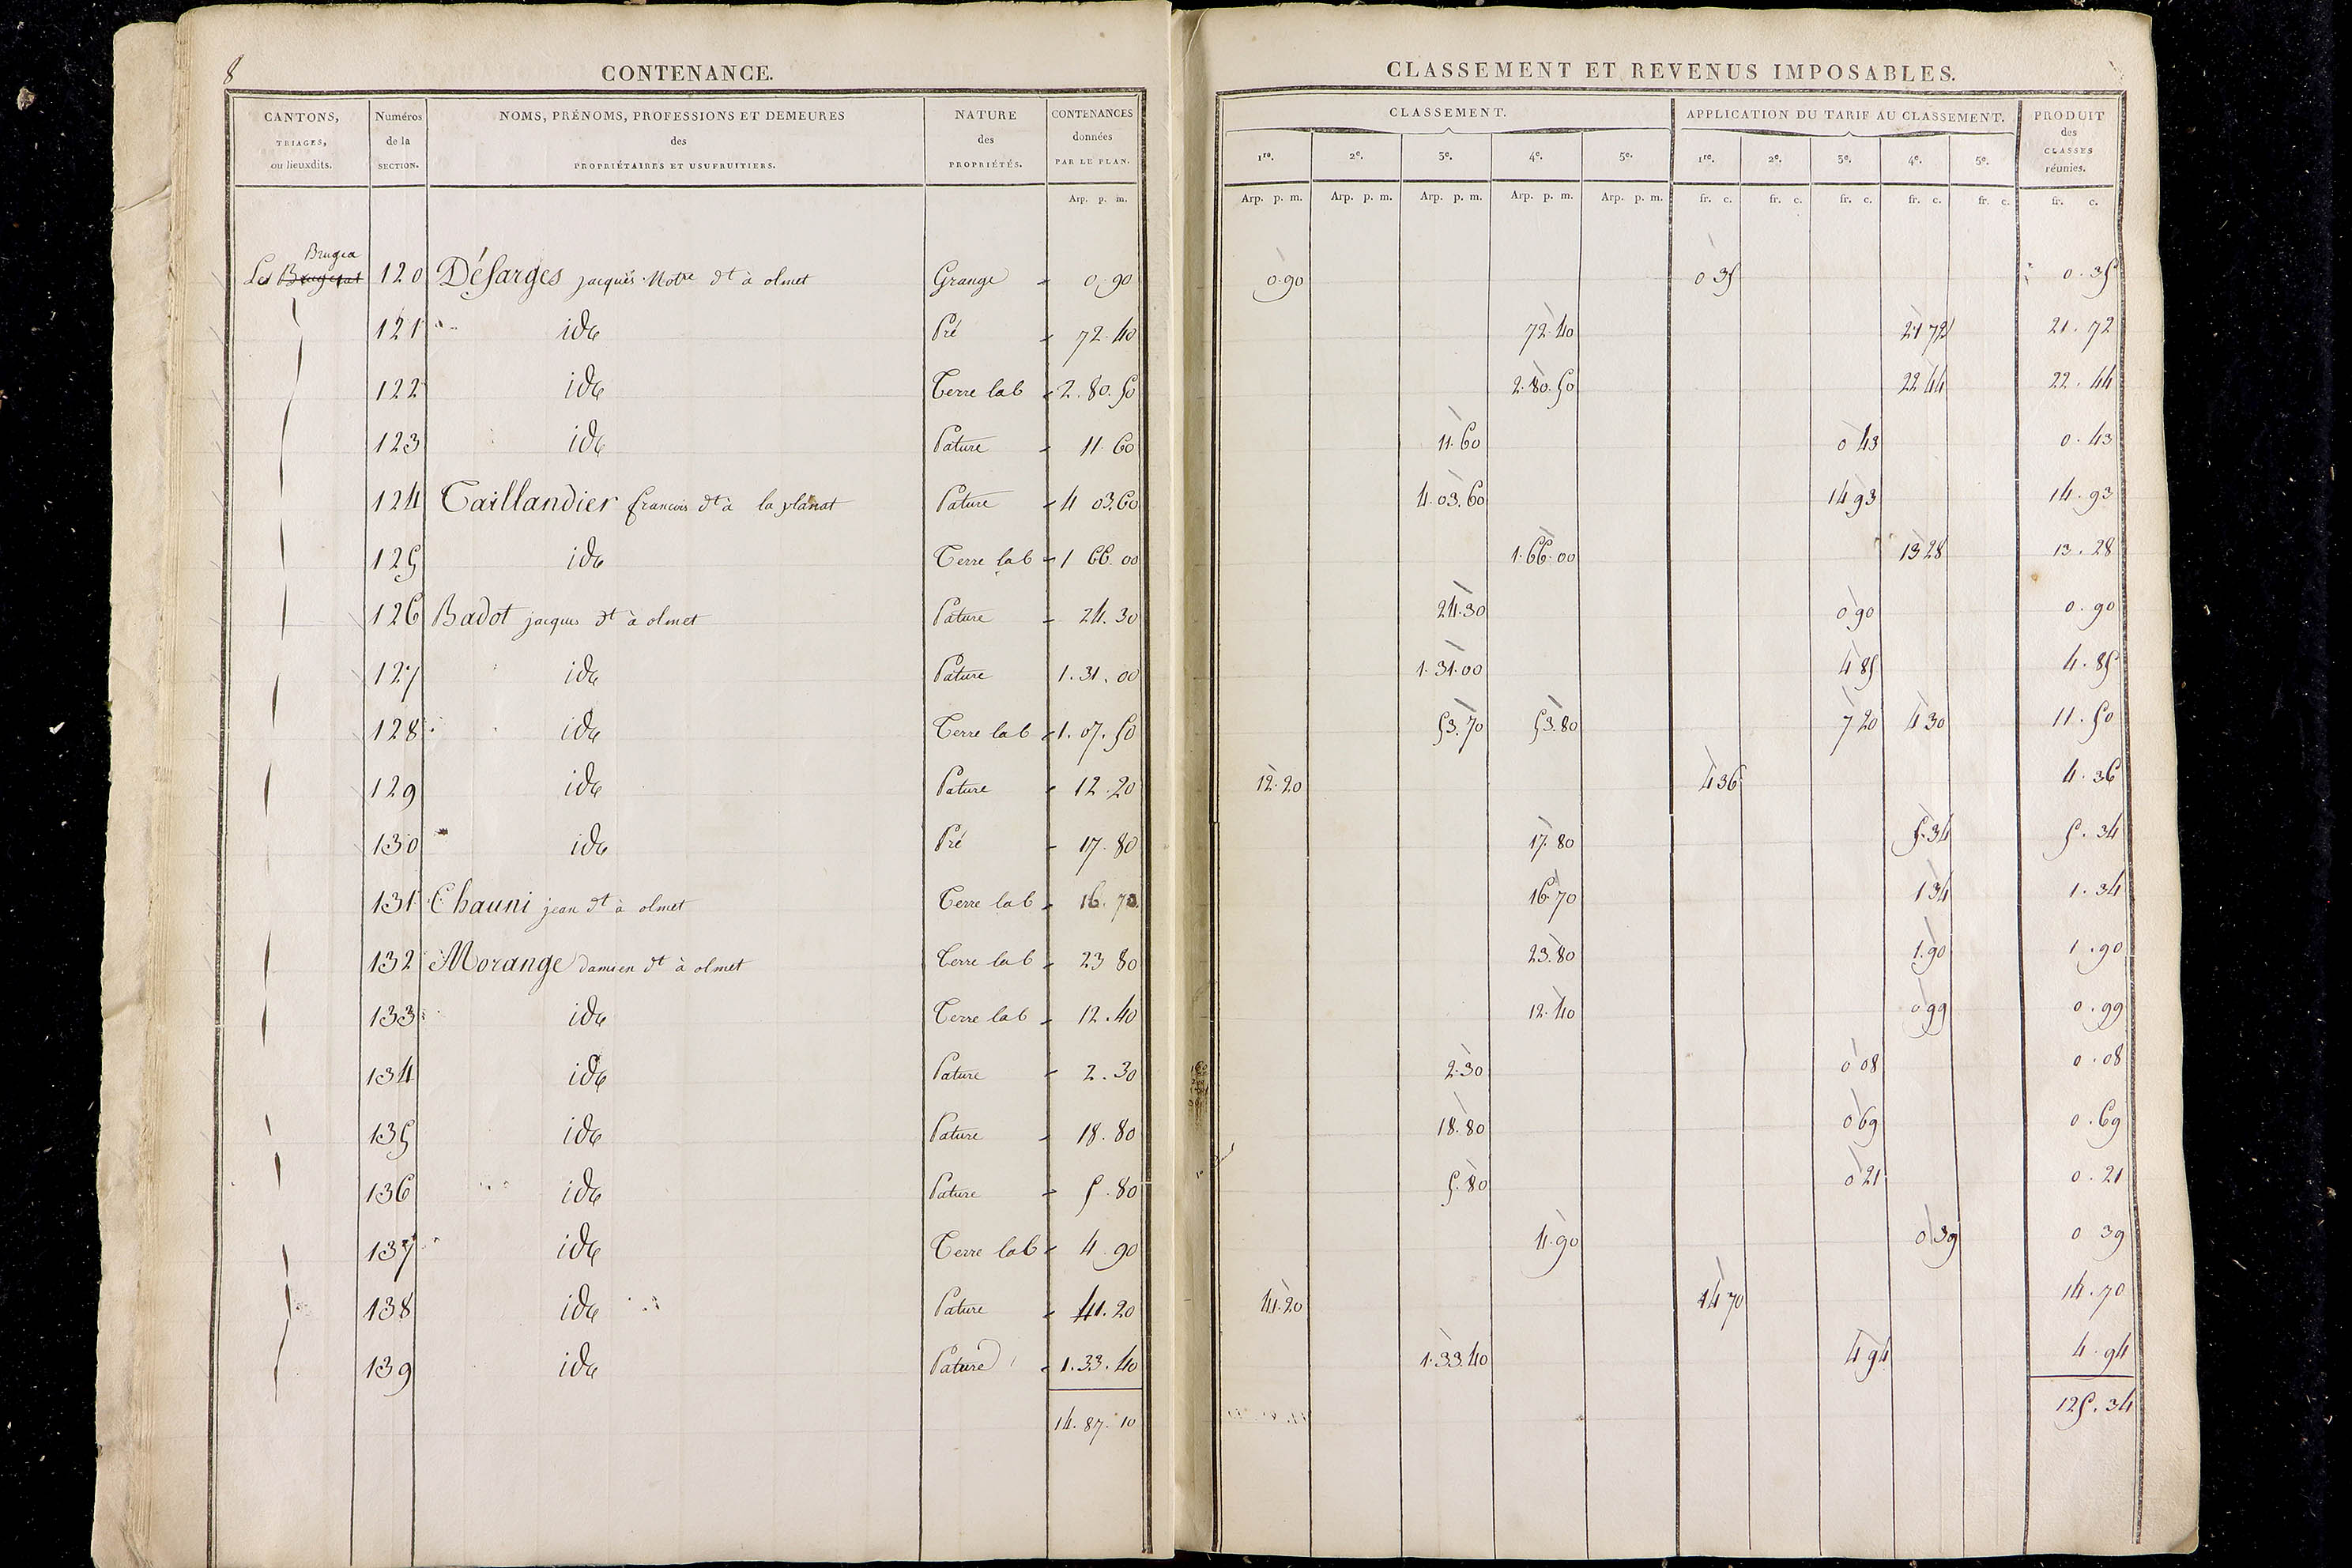 8
CONTENANCE.
CANTONS, TRIAGES, ou lieuxdits. | Numéros de la SECTION. | NOMS, PRÉNOMS, PROFESSIONS ET DEMEURES des PROPRIÉTAIRES ET USUFRUITIERS. | NATURE des PROPRIÉTÉS. | CONTENANCES données PAR LE PLAN.
Arp. p. m.
Brugea
Les 120 Désarges jacques Notre dt à olmet Grange 0,90
121 ide Pré 72.40
122 ide Terre lab 2.80.50
123 ide Pature 11.60
124 Taillandier francois dt à la planat Pature 4 03.60
125 ide Terre lab 1 66.00
126 Badot jacques dt à olmet Pature 24.30
127 ide Pature 1.31.00
128 ide Terre lab 1.07.50
129 ide Pature 12.20
130 ide Pré 17.80
131 Chauni jean dt à olmet Terre lab 16.70
132 Morange damien dt à olmet Terre lab 23 80
133 ide Terre lab 12.40
134 ide Pature 2.30
135 ide Pature 18.80
136 ide Pature 5.80
137 ide Terre lab 4.90
138 ide Pature 41.20
139 ide Pature 1.33.40
14.87.10
CLASSEMENT ET REVENUS IMPOSABLES.
CLASSEMENT. | APPLICATION DU TARIF AU CLASSEMENT. | PRODUIT des CLASSES réunies.
1re. 2e. 3e. 4e. 5e. 1re. 2e. 3e. 4e. 5e.
Arp. p. m. Arp. p. m. Arp. p. m. Arp. p. m. Arp. p. m. fr. c. fr. c. fr. c. fr. c. fr. c. fr. c.
0.90 0 35 0.35
72.40 21 72 21.72
2.80.50 22 44 22.44
11.60 0 43 0.43
4.03.60 14 93 14.93
1.66.00 13 28 13.28
24.30 0 90 0.90
1.31.00 4 85 4.85
53.70 53.80 7 20 4 30 11.50
12.20 4 36 4.36
17.80 5.34 5.34
16.70 1 34 1.34
23.80 1.90 1.90
12.40 0 99 0.99
2.30 0 08 0.08
18.80 0 69 0.69
5.80 0 21 0.21
4.90 0 39 0 39
41.20 14 70 14.70
1.33.40 4 94 4.94
125.34